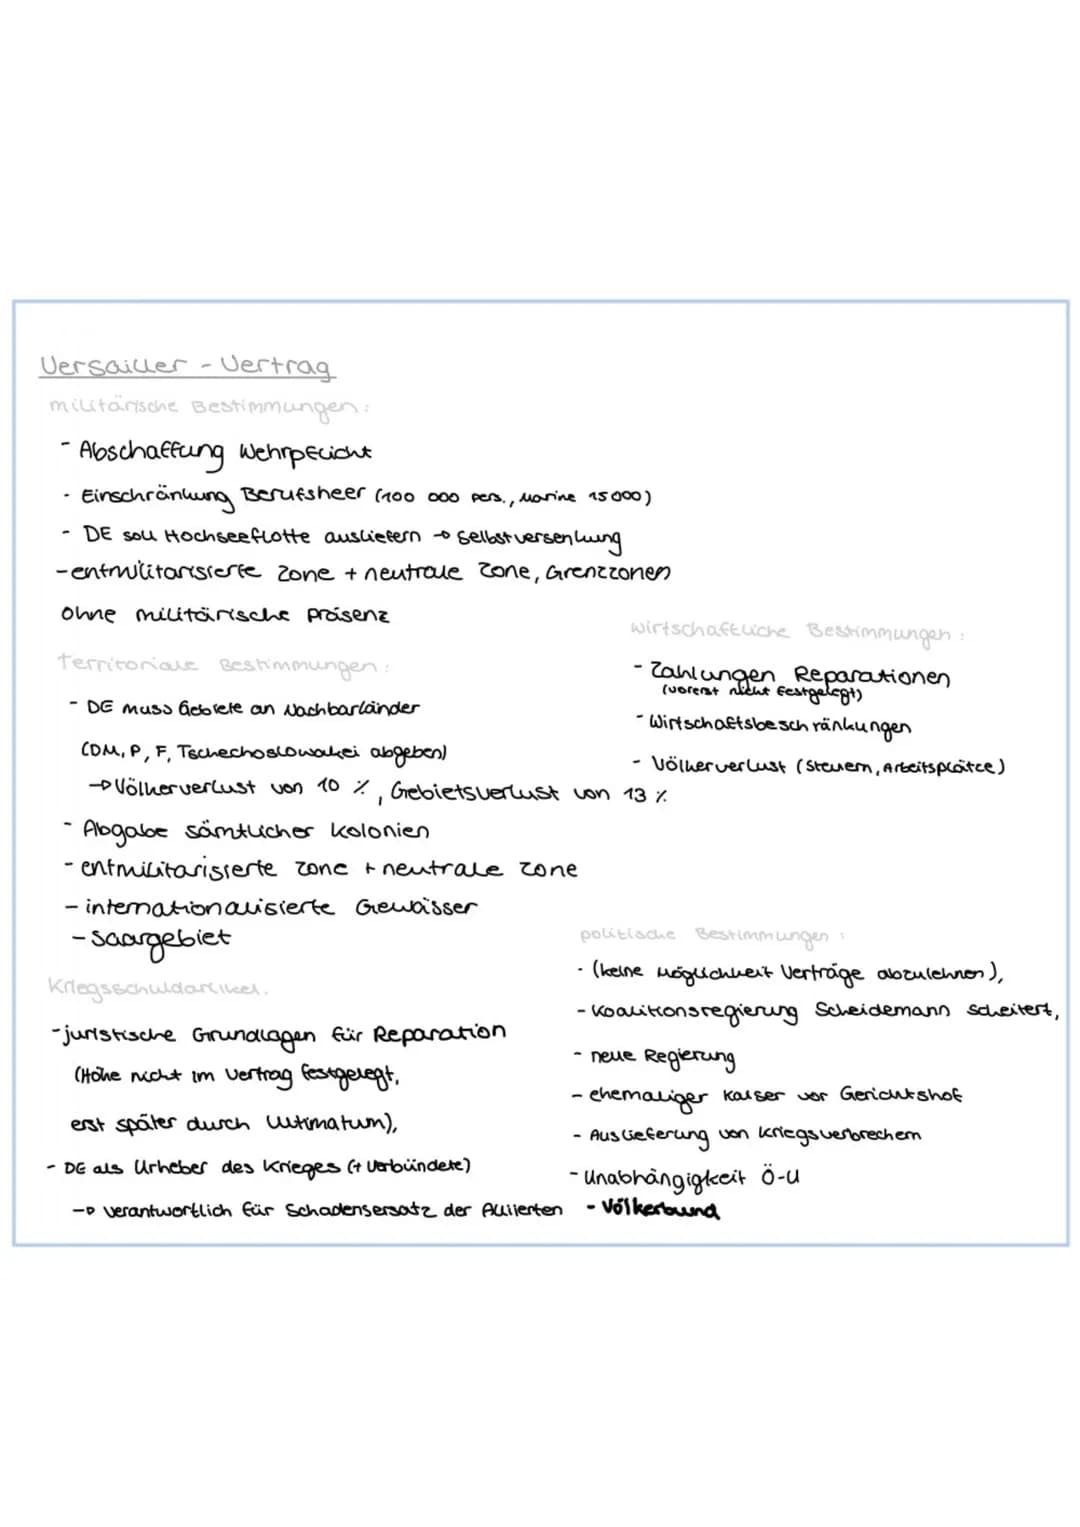 Versailler - Vertrag
militärische Bestimmungen:
- Abschaffung Wehrpflicht
- Einschränkung Berufsheer (100 000 Pers., Marine 15000)
- DE soll Hochseeflotte ausliefern → Selbstversenkung
- entmilitarisierte Zone + neutrale Zone, Grenzzonen
ohne militärische Präsenz
territoriale Bestimmungen:
- DE muss Gebiete an Nachbarländer
(DM, P, F, Tschechoslowakei abgeben)
→ Völkerverlust von 10 %, Gebietsverlust von 13 %
- Abgabe sämtlicher Kolonien
- entmilitarisierte Zone + neutrale Zone
- internationalisierte Gewässer
- Saargebiet
Kriegsschuldartikel:
- juristische Grundlagen für Reparation
(Höhe nicht im Vertrag festgelegt,
erst später durch Ultimatum),
- DE als Urheber des Krieges (+ Verbündete)
→ verantwortlich für Schadensersatz der Alliierten
wirtschaftliche Bestimmungen:
- Zahlungen Reparationen
(vorerst nicht festgelegt)
- Wirtschaftsbeschränkungen
- Völkerverlust (Steuern, Arbeitsplätze)
politische Bestimmungen:
- (keine Möglichkeit Verträge abzulehnen),
- Koalitionsregierung Scheidemann scheitert,
- neue Regierung
- ehemaliger Kaiser vor Gerichtshof
- Auslieferung von Kriegsverbrechern
- Unabhängigkeit Ö-U
- Völkerbund